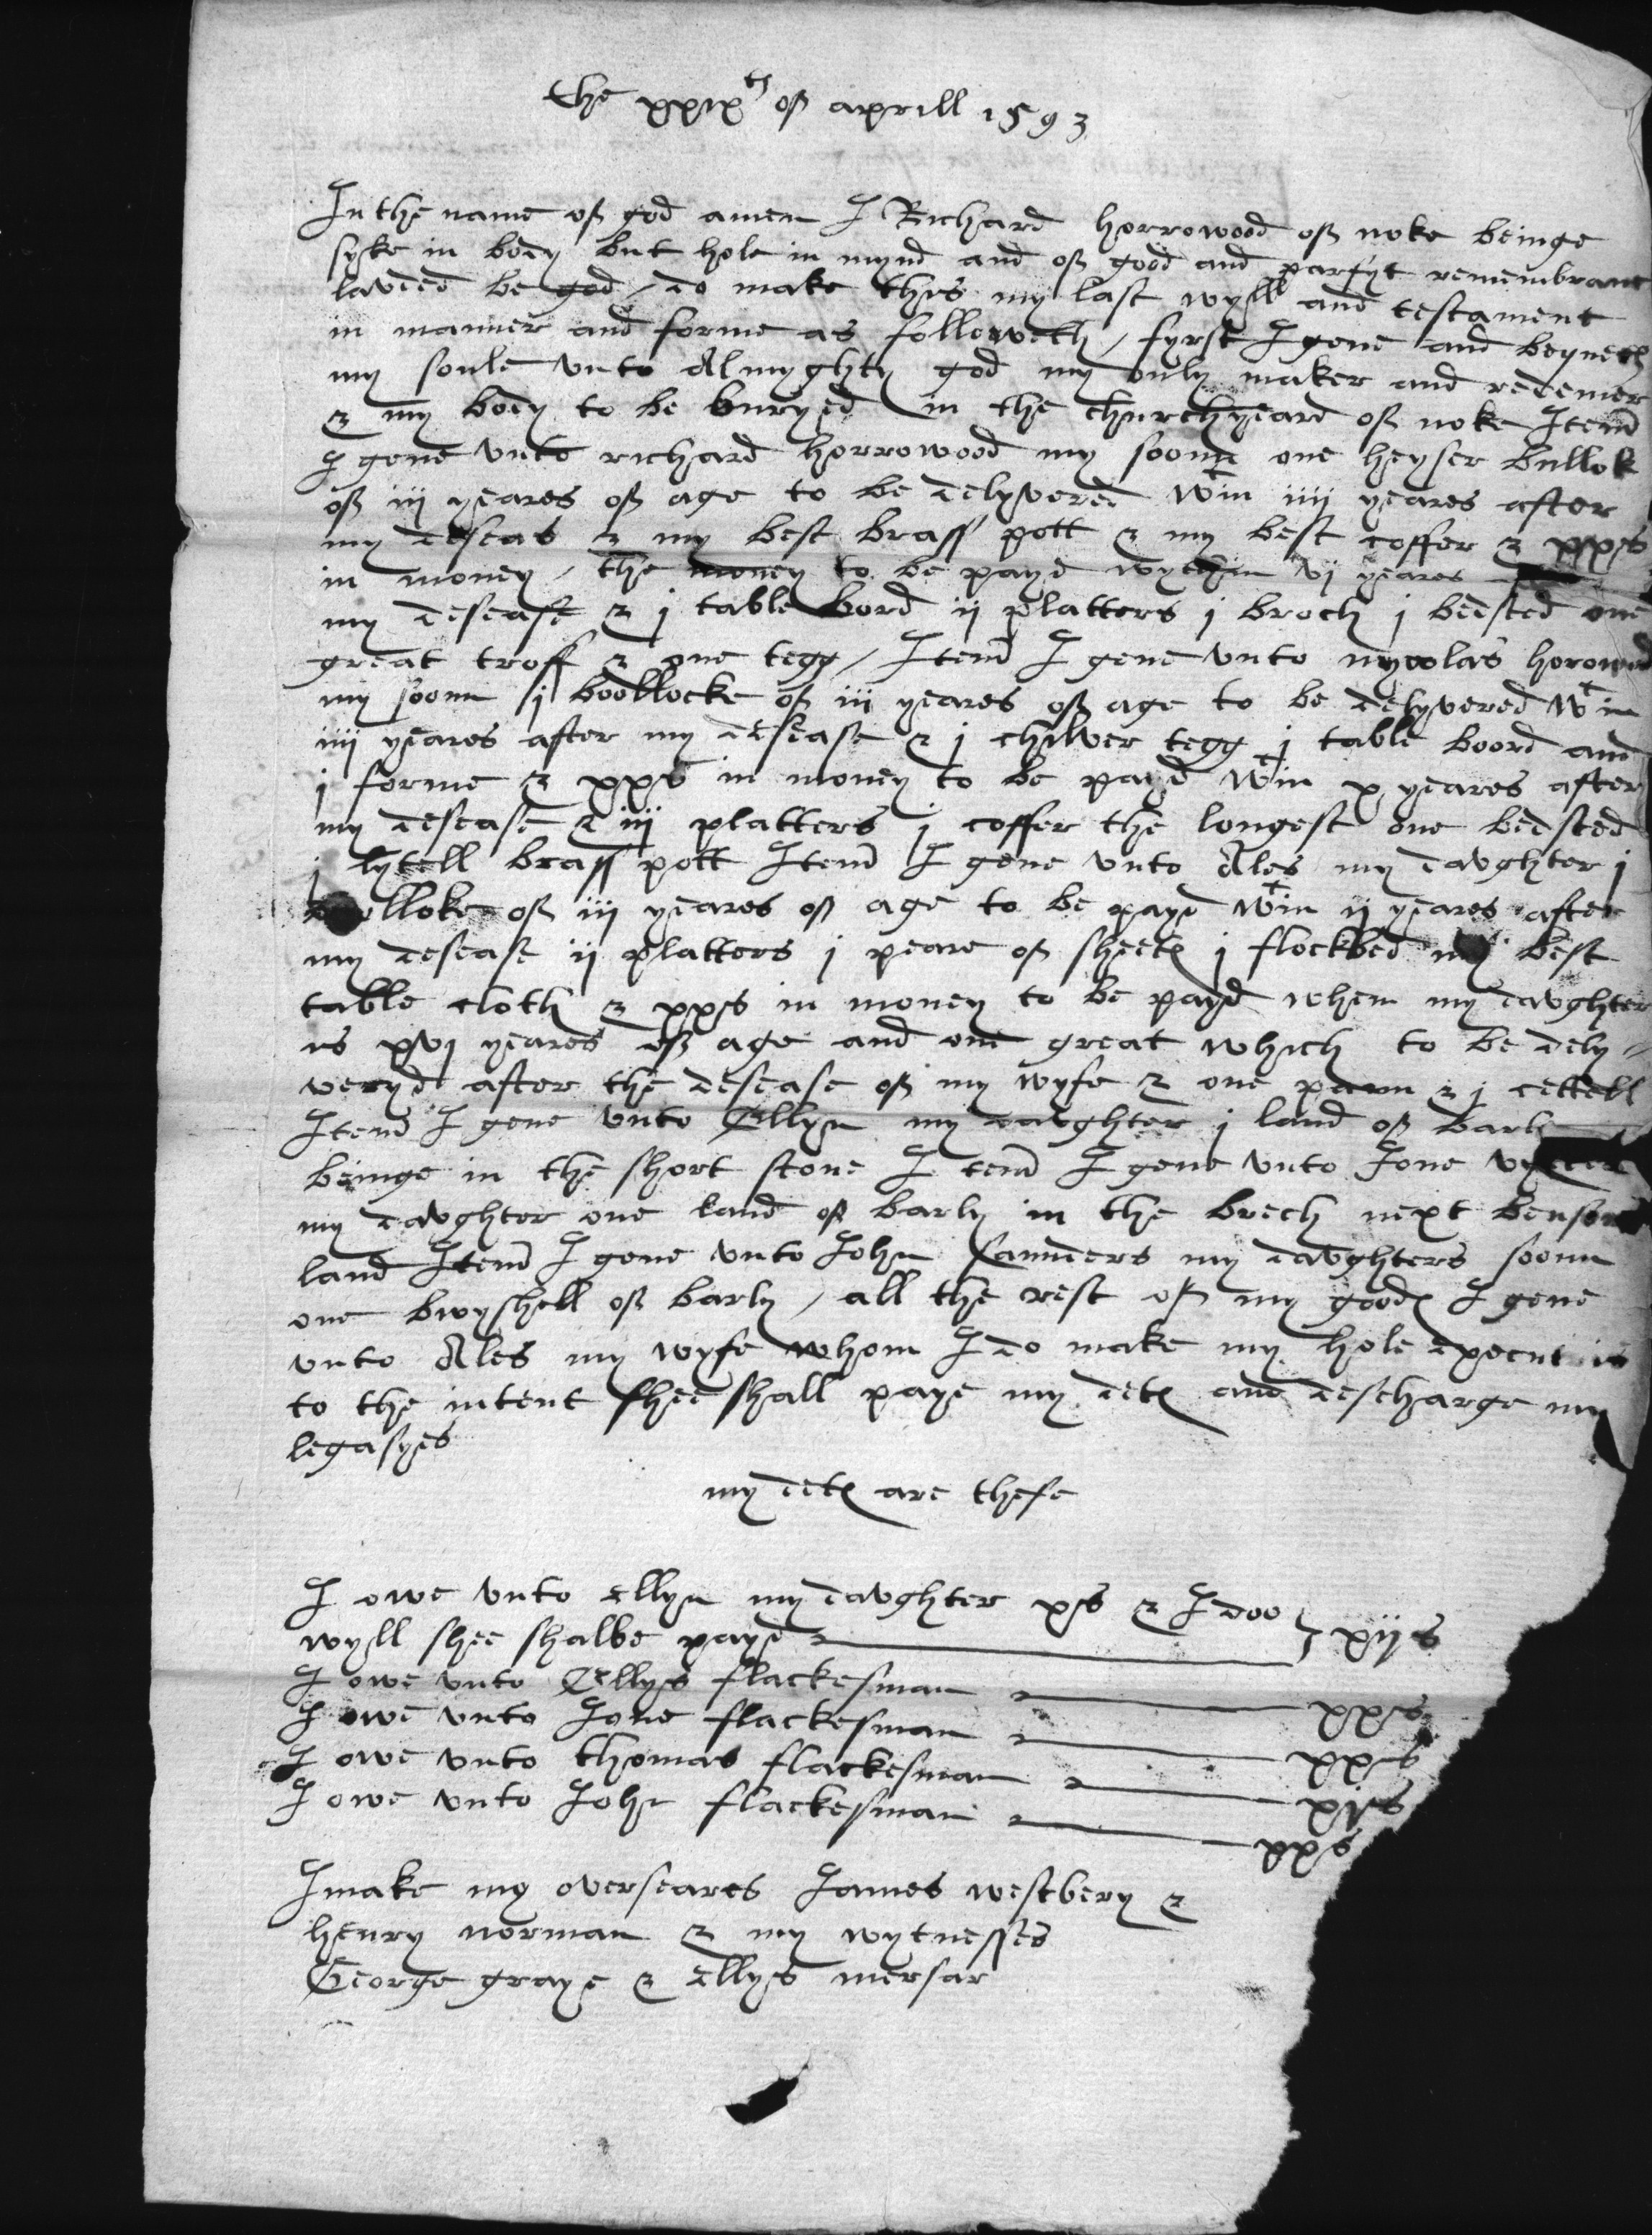 the xxixth of aprill 1593
In the name of god amen I Richard horrowood of noke beinge
syke in body but hole in mynd and of good and parfyt remembranc
lauded be god / do make this my last wyll and testament
in manner and forme as followeth / fyrst I geue and beqneth
my soule vnto Almyghty god my only maker and redemer
& my body to be buryed in the churchyeard of noke Item
I geue vnto richard horrowood my soonn one heyfer bullok
of iij yeares of age to be delyvered wtin iiij yeares after
my deseas & my best brass pott & my best coffer & xxxs
in money / the money to be payd wythin vj yeares
my desease & j table bord ij platters j broch j bedsted one
great troff & one tegg / Item I geue vnto nycolas horowod
my soonn j boollocke of iij yeares of age to be delyvered wtin
iiij yeares after my desease & j chilver tegg j table boord and
j forme & xxs in money to be payd wtin x yeares after
my desease & iij platters j coffer the longest one bedsted
j lytell brass pott Item I geue vnto Ales my daughter j
bollloke of iij yeares of age to be payd wtin ij yeares after
my desease ij platters j peare of sheetes j flockbed my best
table cloth & xxs in money to be payd when my daughter
is xvj yeares of age and one great which to be dely=
veryd after the desease of my wyfe & one pann & j cettell
Item I geue vnto Ellyn my daughter j land of barly
beinge in the short stone Item I geue vnto Jone
my daughter one land of barly in the brech next
land Item I geue vnto John saunders my daughters soonn
one bwyshell of barly / all the rest of my goodes I geue
vnto Ales my wyfe whom I do make my hole
to the intent shee shall paye my detes and descharge my
legasyes
my detes are these
I owe vnto ellyn my daughter xs & I doo
wyll shee shalbe payd xijs
I owe vnto Ellys flackesman xxs
I owe vnto Jone flackesman xxs
I owe vnto thomas flackesman
I owe vnto John flackesman xxs
I make my overseares James westbery &
henry norman & my wytnesses
George graye & ellys mersar